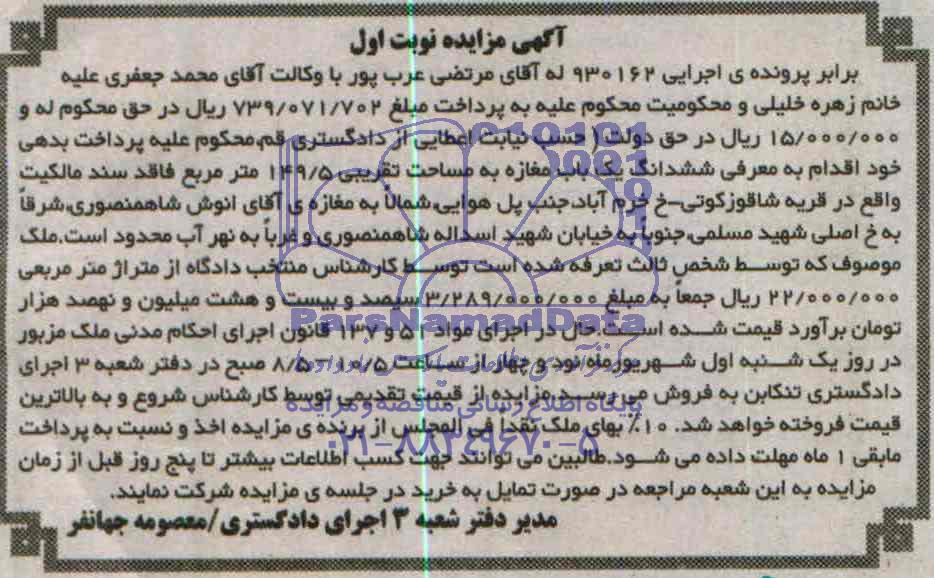 آگهی مزایده نوبت اول
برابر پرونده ی اجرایی ۹۳۰۱۶۲ له آقای مرتضی عرب پور با وکالت آقای محمد جعفری علیه
خانم زهره خلیلی و محکومیت محکوم علیه به پرداخت مبلغ ۷۳۹/۰۷۱/۷۰۲ ریال در حق محکوم له و
۱۵/۰۰۰/۰۰۰ ریال در حق دولت ( حسب نیابت اعطایی از دادگستری قم،محکوم علیه پرداخت بدهی
خود اقدام به معرفی ششدانگ یک باب مغازه به مساحت تقریبی ۱۴۹/۵ متر مربع فاقد سند مالکیت
واقع در قریه شاقوزکوتی-خ خرم آباد،جنب پل هوایی،شمالاً به مغازه ی آقای انوش شاهمنصوری،شرقاً
به خ اصلی شهید مسلمی،جنوباً به خیابان شهید اسداله شاهمنصوری و غرباً به نهر آب محدود است.ملک
موصوف که توسط شخص ثالث تعرفه شده است توسط کارشناس منتخب دادگاه از متراژ متر مربعی
۲۲/۰۰۰/۰۰۰ ریال جمعاً به مبلغ ۳/۲۸۹/۰۰۰/۰۰۰ سیصد و بیست و هشت میلیون و نهصد هزار
تومان برآورد قیمت شده است.حال در اجرای مواد ۵۱ و ۱۳۷ قانون اجرای احکام مدنی ملک مزبور
در روز یک شنبه اول شهریورماه نود و چهار از ساعت ۸/۵-۱۰/۵ صبح در دفتر شعبه ۳ اجرای
دادگستری تنکابن به فروش می رسد.مزایده از قیمت تقدیمی توسط کارشناس شروع و به بالاترین
قیمت فروخته خواهد شد. ۱۰٪ بهای ملک نقداً فی المجلس از برنده ی مزایده اخذ و نسبت به پرداخت
مابقی ۱ ماه مهلت داده می شود.طالبین می توانند جهت کسب اطلاعات بیشتر تا پنج روز قبل از زمان
مزایده به این شعبه مراجعه در صورت تمایل به خرید در جلسه ی مزایده شرکت نمایند.
مدیر دفتر شعبه ۳ اجرای دادگستری/معصومه جهانفر
ParsNamadData
پایگاه اطلاع رسانی مناقصه و مزایده
۰۲۱-۸۸۳۴۹۶۷۰-۵